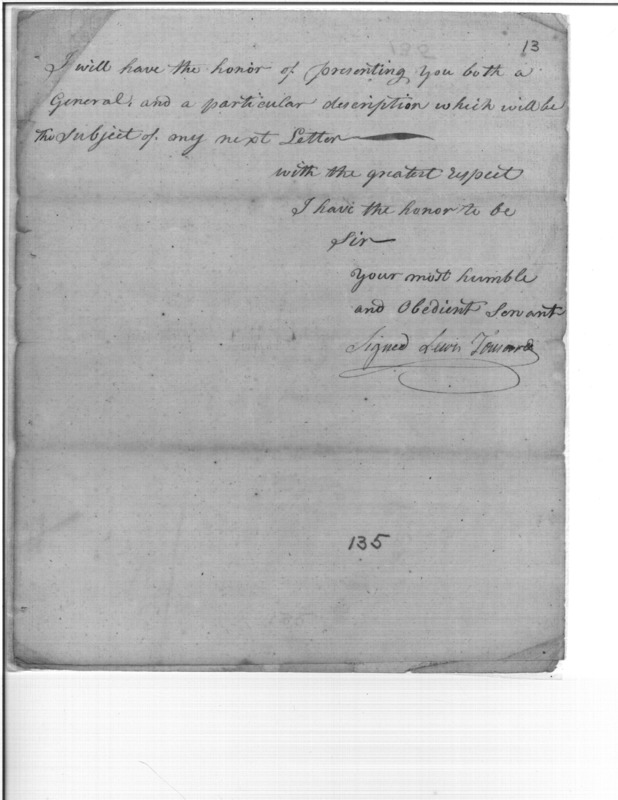 13
I will have the honor of presenting you both a
General, and a particular description which will be
the subject of my next Letter
with the greatest respect
I have the honor to be
Sir
your most humble
and Obedient Servant
Signed Lewis Tousard
135